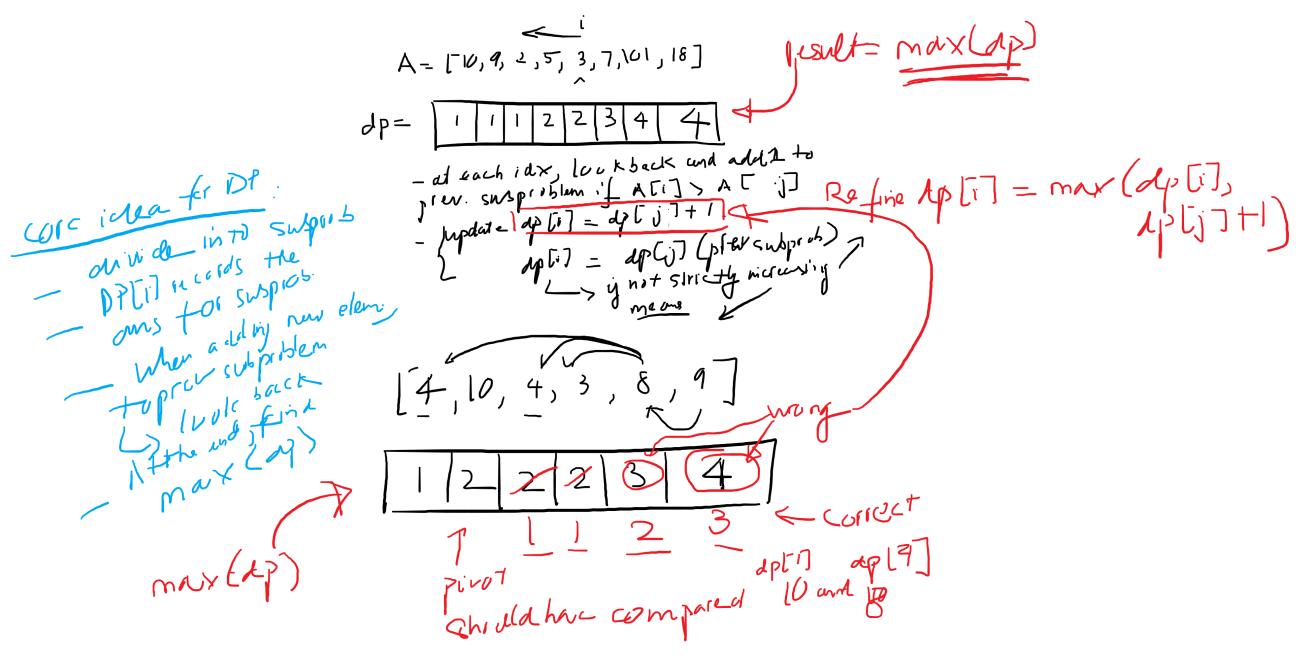 i
A = [10, 9, 2, 5, 3, 7, 101, 18]
^
result = max(dp)
dp =
1 1 1 2 2 3 4 4
- at each idx, look back and add 1 to
prev. subproblem if A[i] > A[ j]
- update dp[i] = dp[j] + 1
dp[i] = dp[j] (prev subprob)
if not strictly increasing
means
Refine dp[i] = max(dp[i],
dp[j]+1)
core idea for DP:
- divide into subprob
- DP[i] records the
ans for subprob.
- when adding new elem,
to prev subproblem
look back
- At the end, find
max(dp)
[4, 10, 4, 3, 8, 9]
wrong
1 2 2 2 3 4
1 1 2 3
correct
max(dp)
pivot
dp[1] dp[4]
should have compared 10 and 8